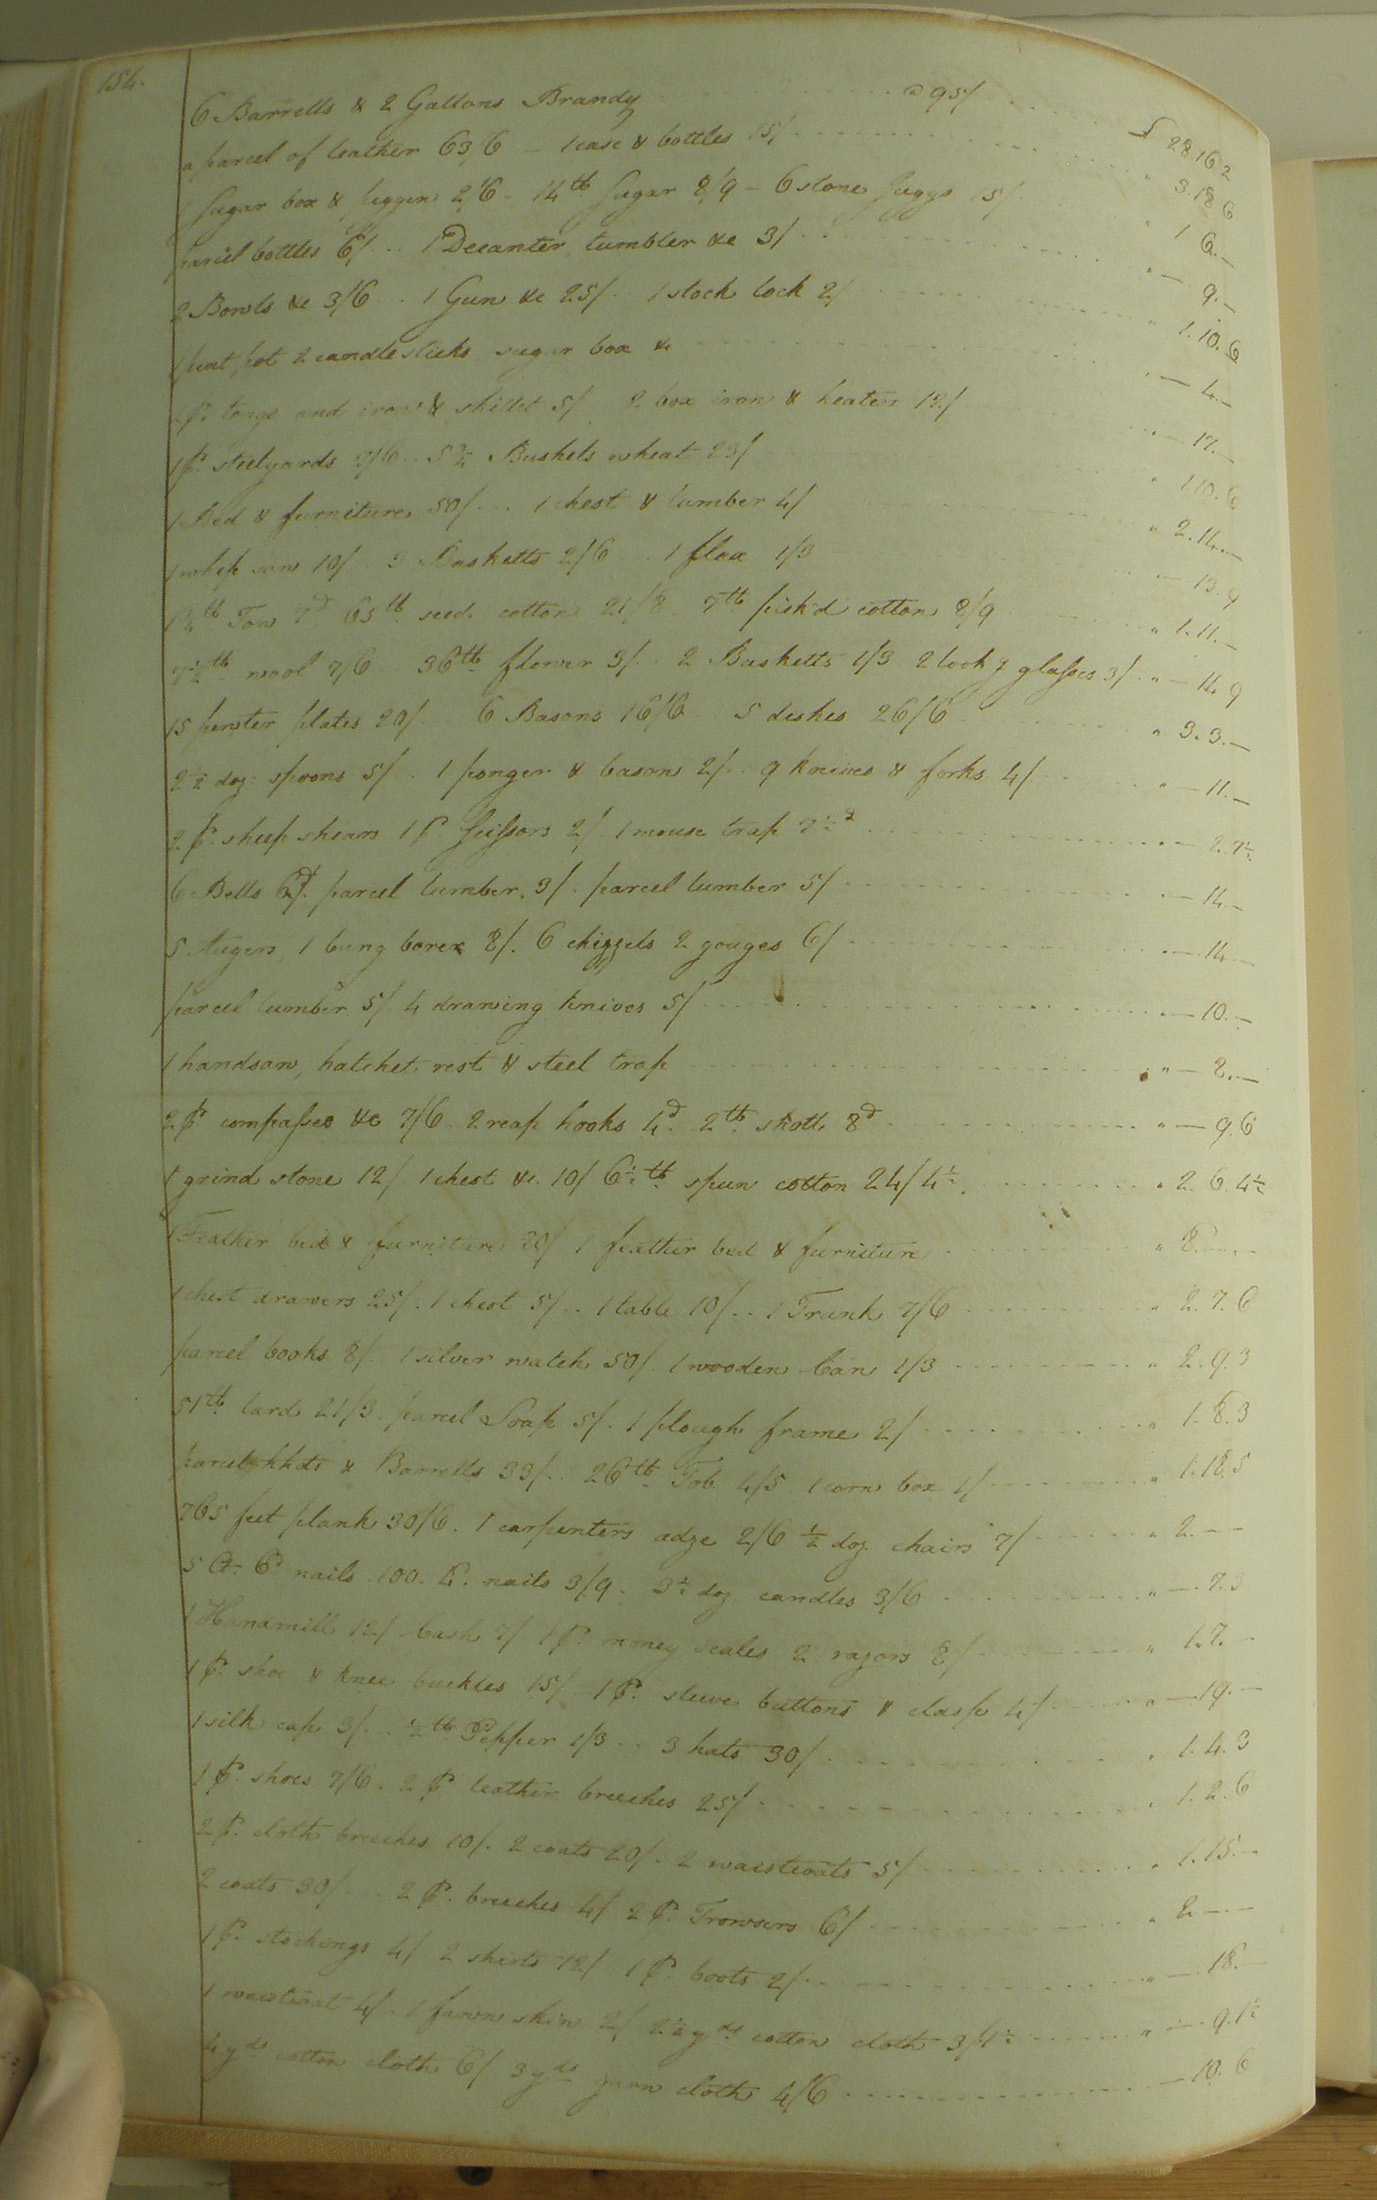 154.
6 Barrells & 2 Gallons Brandy @ 95/ £ 28.16.2
a parcel of leather 63/6 - 1 case & bottles 15/ " 3.18.6
1 Sugar box & piggin 2/6 14lb Sugar 8/9 - 6 stone Juggs 15/ " 1.6.-
parcel bottles 6/ 1 Decanter, tumbler &c 3/ " - 9.-
2 Bowls &c 3/6 1 Gun &c 25/ 1 stock lock 2/ " 1.10.6
1 pint pot 2 candlesticks sugar box & " - 4.-
pr tongs and iron & skillet 5/ 2 box iron & heaters 12/ " - 17.-
1 pr steelyards 7/6 5¾ Bushels wheat 23/ " 1.10.6
1 Bed & furniture 50/ 1 chest & lumber 4/ " 2.14.-
1 whip saw 10/ 3 Basketts 2/6 1 flax 1/3 - 13.9
lb Tow 7d 65lb seed cotton 21/8 7lb pick'd cotton 8/9 " 1.11.-
7½lb wool 7/6 36lb flower 3/ 2 Basketts 1/3 2 look'g glasses 3/ " - 14.9
15 pewter plates 20/ 6 Basons 16/6 5 dishes 26/6 " 3.3.-
2½ doz: spoons 5/ 1 ponger & bason 2/ 9 knives & forks 4/ " - 11.-
2 pr sheep shears 1 pr Scissors 2/ 1 mouse trap 7½d - 2.7½
6 Bells 6/ parcel lumber 3/ parcel lumber 5/ - 14.-
5 Augers, 1 bung borer 8/. 6 chizzels 2 gouges 6/ " - 14.-
parcel lumber 5/ 4 drawing knives 5/ " - 10.-
1 handsaw, hatchet, rest & steel trap " - 2.-
2 pr compasses &c 7/6 2 reap hooks 4d 2lb shott 8d " - 9.6
1 grind stone 12/ 1 chest &c. 10/ 6½lb spun cotton 24/4½ " 2.6.4½
1 Feather bed & furniture 1 feather bed & furniture " 8.-.-
1 chest drawers 25/. 1 chest 5/ 1 table 10/ 1 Trunk 7/6 " 2.7.6
parcel books 8/ 1 silver watch 50/ 1 wooden Can 1/3 " 2.9.3
51lb lard 21/3 parcel Soap 5/. 1 plough frame 2/ " 1.8.3
parcel hhds & Barrells 33/ 26lb Tob 4/5 1 corn box 1/ " 1.18.5
765 feet plank 30/6. 1 carpenters adze 2/6 ½ doz. chairs 7/ " 2.-.-
5 6d nails 100. nails 3/9. 3½ doz candles 3/6 " - 7.3
1 Handmill 12/ Cash 7/ 1 pr money scales 2 razors 8/ " 1.7.-
1 pr shoe & knee buckles 15/ 1 pr sleeve buttons & clasp 4/ " - 19.-
1 silk cap 3/ ½lb Pepper 1/3 3 hats 30/ " 1.4.3
1 pr shoes 7/6. 2 pr leather breeches 25/ " 1.2.6
2 pr cloth breeches 10/. 2 coats 20/. 2 waistcoats 5/ " 1.15.-
2 coats 30/ 2 pr breeches 4/ 2 pr Trowsers 6/ " 2.-.-
1 pr stockings 4/ 2 shirts 12/ 1 pr boots 2/ " - 18.-
1 waistcoat 4/ 1 fawn skin 2/ 2½ yds cotton cloth 3/1½ " - 9.1½
4 yds cotton cloth 6/ 3 yds yarn cloth 4/6 - 10.6